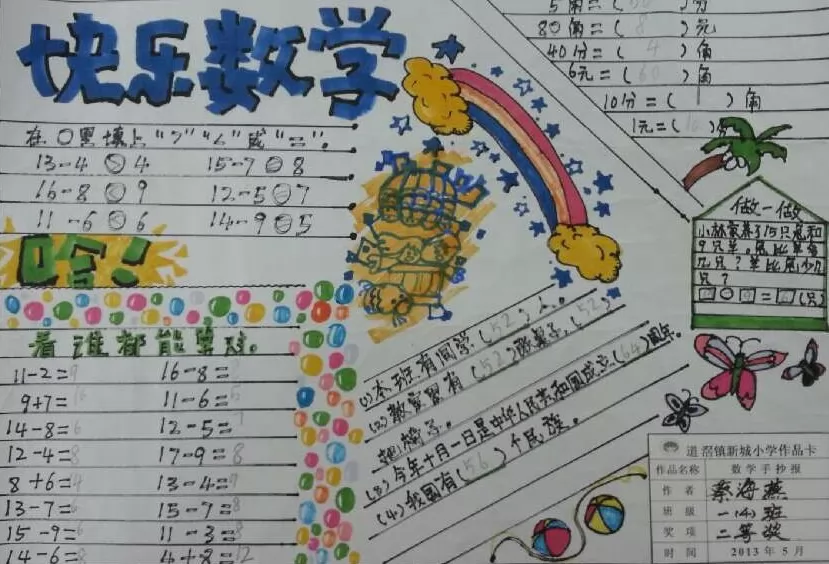 快乐数学
在○里填上“>”“<”或“=”。
13-4○4 15-7○8
16-8○9 12-5○7
11-6○6 14-9○5
哈！
看谁都能算对。
11-2=9 16-8=
9+7=16 11-6=5
14-8=6 12-5=7
12-4=8 17-9=8
8+6= 13-4=9
13-7=6 15-7=8
15-9=6 11-3=8
14-6=8 4+8=12
5角=(50)分
80角=(8)元
40分=(4)角
6元=(60)角
10分=(1)角
1元=(10)
做一做
小林家养了15只兔和
9只羊。兔比羊多
几只？羊比兔少几
只？
□○□=□(只)
(1)本班有同学(52)人。
(2)教室里有(52)张桌子,(52)
把椅子。
(3)今年十月一日是中华人民共和国成立(64)周年。
(4)我国有(56)个民族。
道滘镇新城小学作品卡
作品名称 数学手抄报
作者 秦海燕
班级 一(4)班
奖项 二等奖
时间 2013年5月